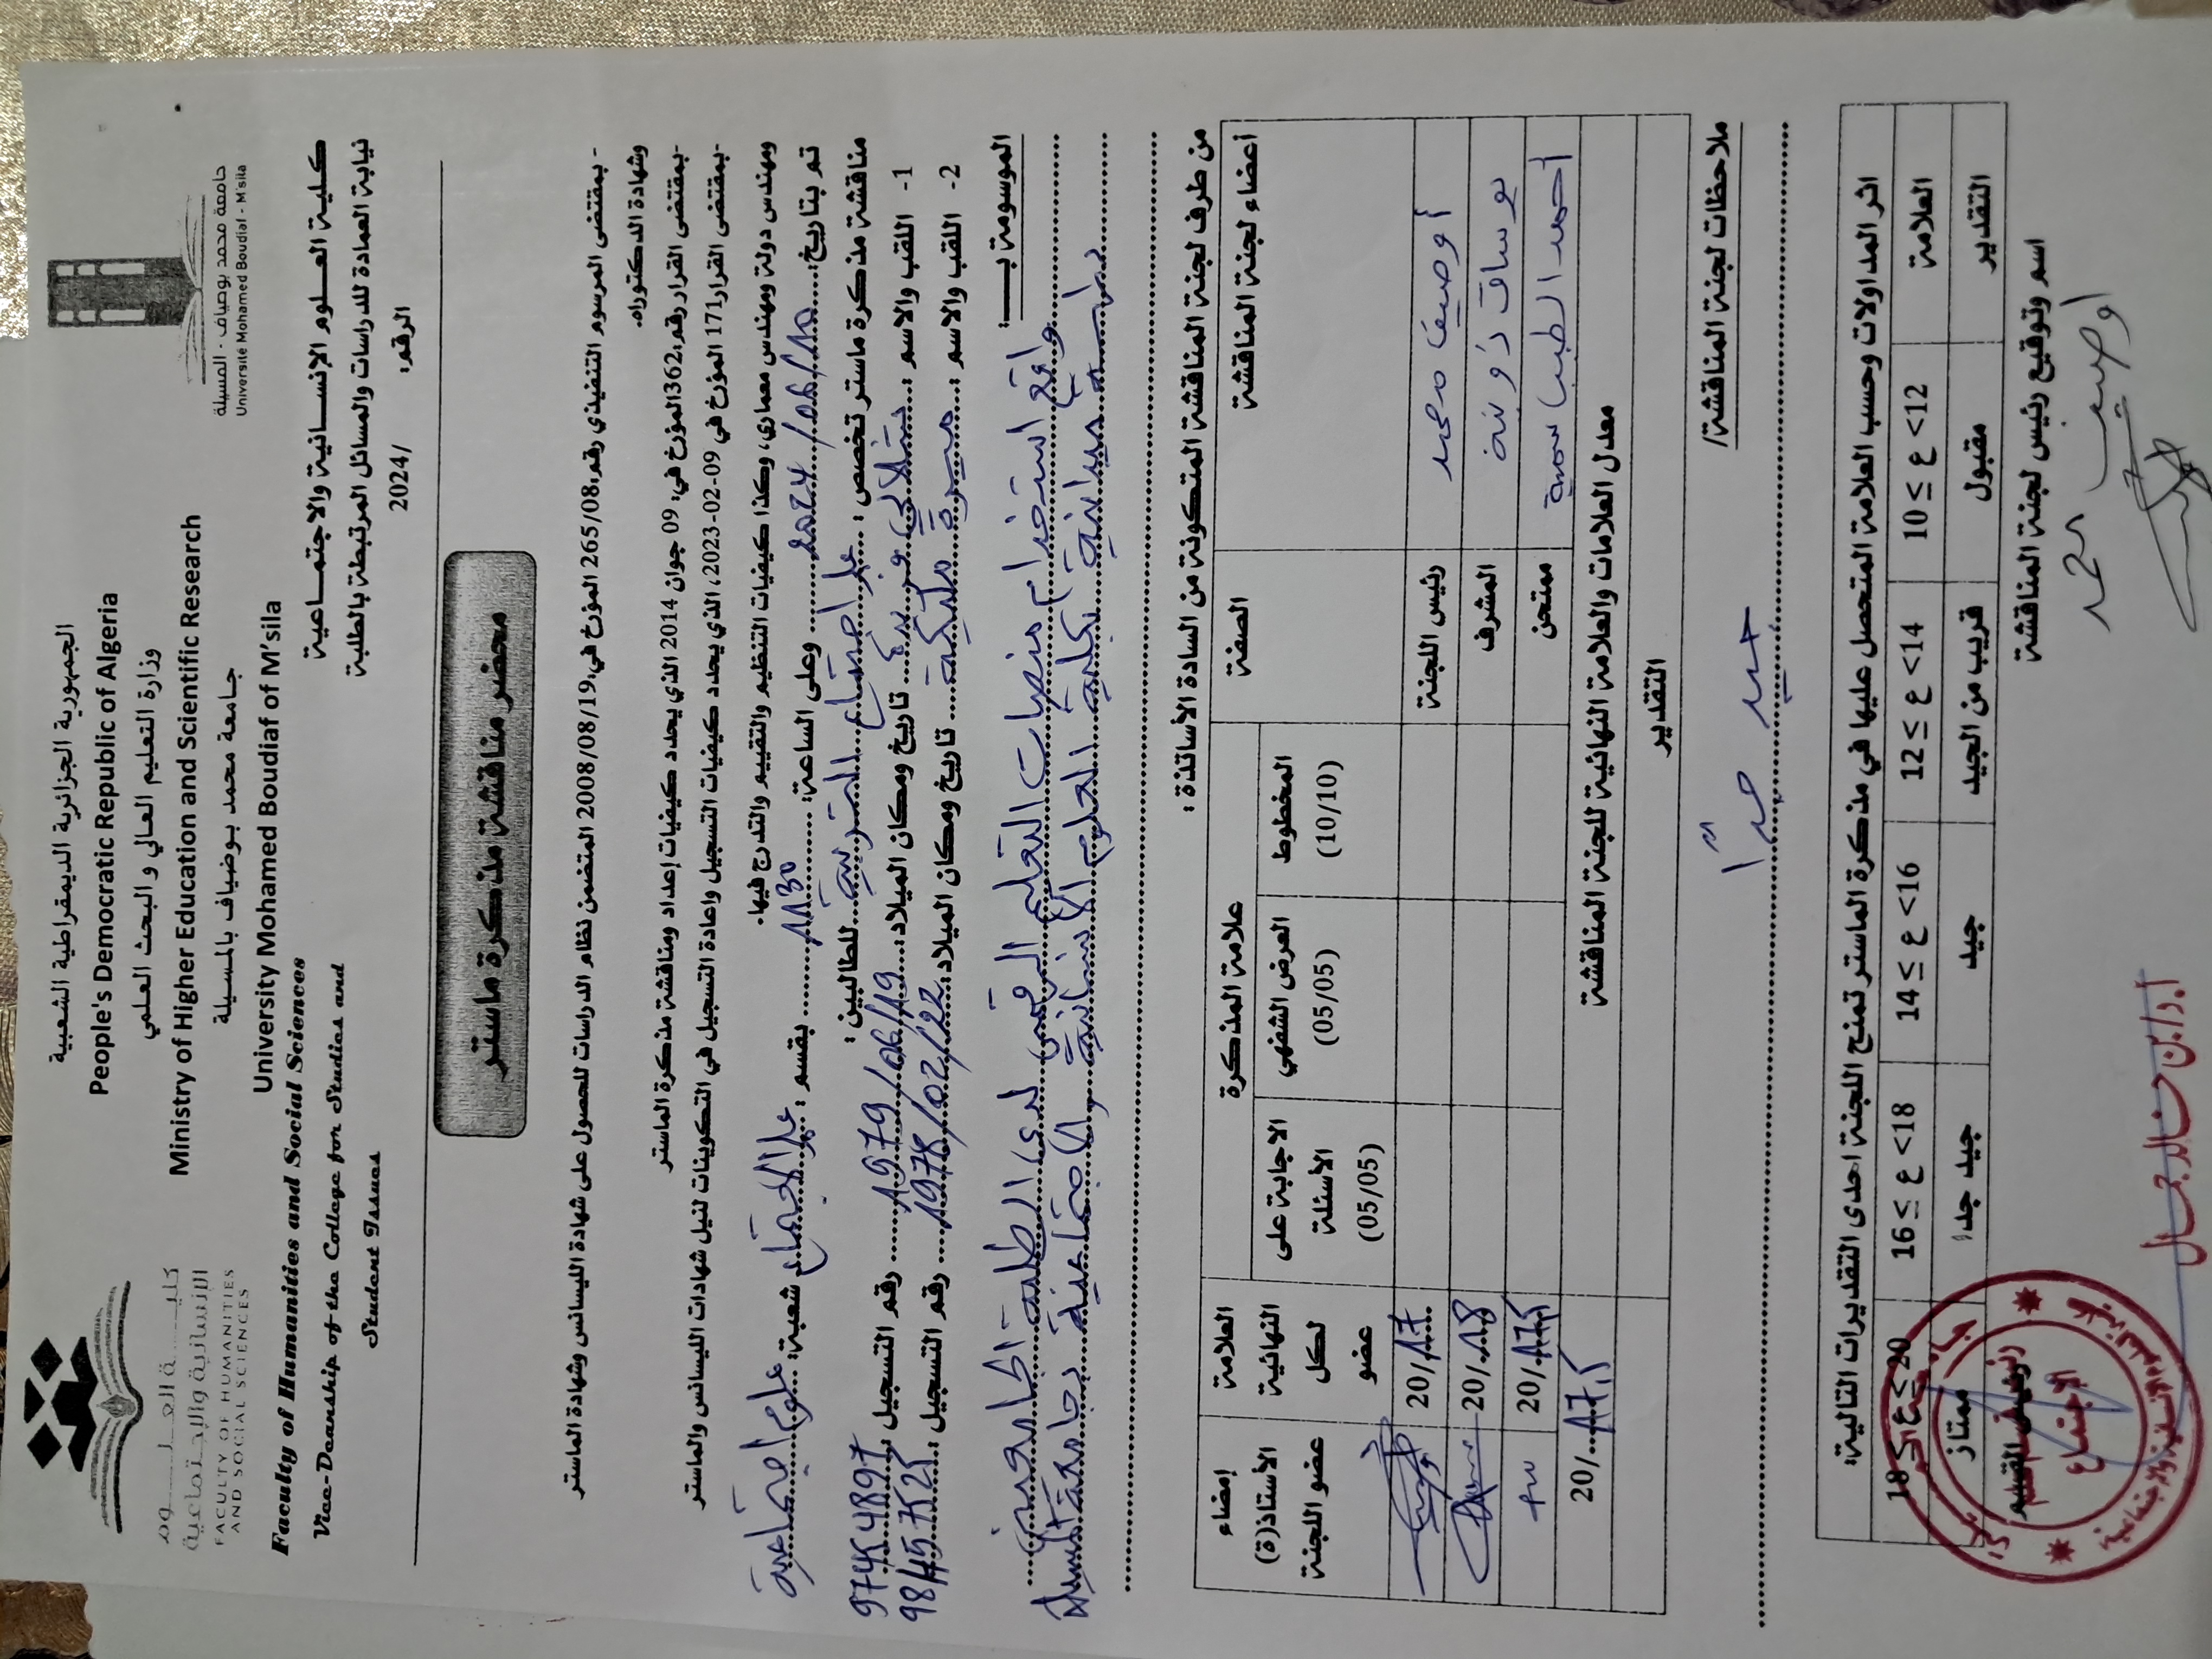 الجمهورية الجزائرية الديمقراطية الشعبية
People's Democratic Republic of Algeria
وزارة التعليم العالي و البحث العلمي
Ministry of Higher Education and Scientific Research
جامعة محمد بوضياف بالمسيلة
University Mohamed Boudiaf of M'sila
جامعة محمد بوضياف - المسيلة
Université Mohamed Boudiaf - M'sila
كليـــــة العلـــــوم
الإنسانية والإجتماعية
FACULTY OF HUMANITIES
AND SOCIAL SCIENCES
كلية العـلـوم الإنسـانية والاجتمـاعية
نيابة العمادة للدراسات والمسائل المرتبطة بالطلبة
الرقم: /2024
Faculty of Humanities and Social Sciences
Vice-Deanship of the College for Studies and
Student Issues
محضر مناقشة مذكرة ماستر
- بمقتضى المرسوم التنفيذي رقم: 265/08 المؤرخ في: 2008/08/19 المتضمن نظام الدراسات للحصول على شهادة الليسانس وشهادة الماستر
وشهادة الدكتوراه.
-بمقتضى القرار رقم: 362 المؤرخ في: 09 جوان 2014 الذي يحدد كيفيات إعداد ومناقشة مذكرة الماستر
-بمقتضى القرار 171 المؤرخ في 09-02-2023، الذي يحدد كيفيات التسجيل وإعادة التسجيل في التكوينات لنيل شهادات الليسانس والماستر
ومهندس دولة ومهندس معماري، وكذا كيفيات التنظيم والتقييم والتدرج فيها.
تم بتاريخ: 2024/06/10 وعلى الساعة: 11:30 بقسم: علم الاجتماع شعبة: علوم اجتماعية
مناقشة مذكرة ماستر تخصص: علم اجتماع التربية للطالبين:
1- اللقب والاسم: بشلالي فريدة تاريخ ومكان الميلاد: 1979/06/19 رقم التسجيل:
2- اللقب والاسم: ميرة مليكة تاريخ ومكان الميلاد: 1978/02/22 رقم التسجيل:
الموسومة بـــــ:
واقع استخدام منصات التعليم الرقمي لدى الطلبة الجامعيين
دراسة ميدانية بكلية العلوم الانسانية والاجتماعية بجامعة المسيلة
من طرف لجنة المناقشة المتكونة من السادة الأساتذة:
أعضاء لجنة المناقشة الصفة علامة المذكرة العلامة النهائية لكل عضو إمضاء الأستاذ(ة) عضو اللجنة
المخطوط (10/10) العرض الشفهي (05/05) الاجابة على الأسئلة (05/05)
أوصيف محمد رئيس اللجنة 20/17
بوساق ذوينة المشرف 20/18
أحمد الطيب سمية ممتحن 20/17.5
معدل العلامات والعلامة النهائية للجنة المناقشة 20/17.5
التقدير
ملاحظات لجنة المناقشة/
جيد جداً
اثر المداولات وحسب العلامة المتحصل عليها في مذكرة الماستر تمنح اللجنة احدى التقديرات التالية:
العلامة 10 ≤ ع <12 12 ≤ ع <14 14 ≤ ع <16 16 ≤ ع <18 18 ≤ ع ≤ 20
التقدير مقبول قريب من الجيد جيد جيد جدا ممتاز
اسم وتوقيع رئيس لجنة المناقشة
رئيس القسم
أوصيف محمد
أ.د/بن خالد جمال